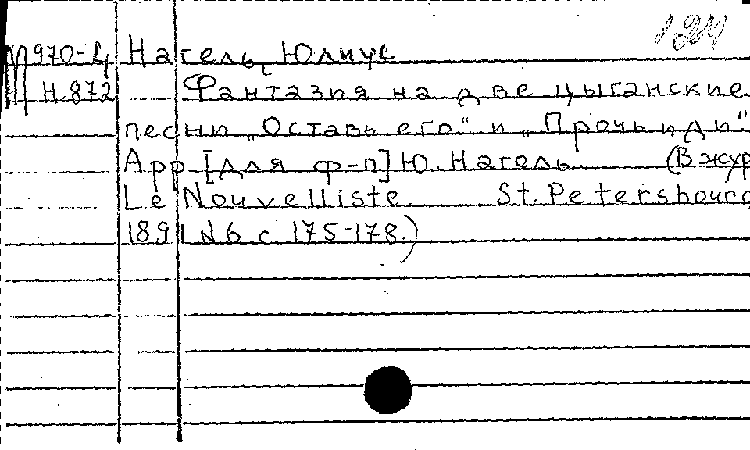 184
М970-4 Нагель, Юлиус
Н.872 Фантазия на две цыганские
песни „Оставь его“ и „Прочь иди“
Арр. [для ф-п] Ю. Нагель (В жур
Le Nouvelliste. St. Petersbourg
1891 N6 с. 175-178.)